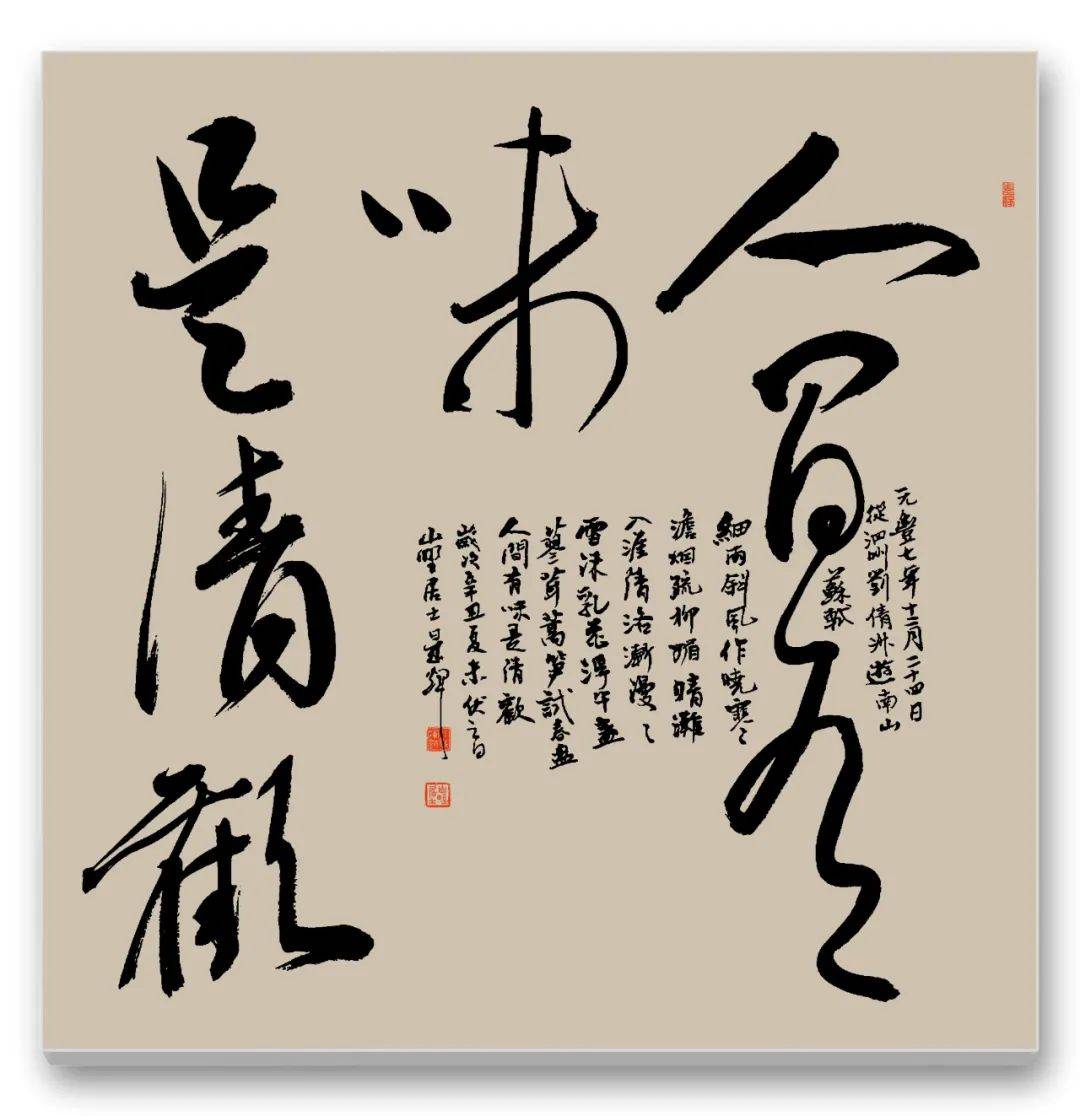 人間有
味
是清歡
元豐七年十二月二十四日
從泗州劉倩叔遊南山
蘇軾
細雨斜風作曉寒
澹烟疏柳媚晴灘
入淮清洛漸漫〻
雪沫乳花浮午盞
蓼茸蒿筍試春盤
人間有味是清歡
歲次辛丑夏末伏之日
山野居士